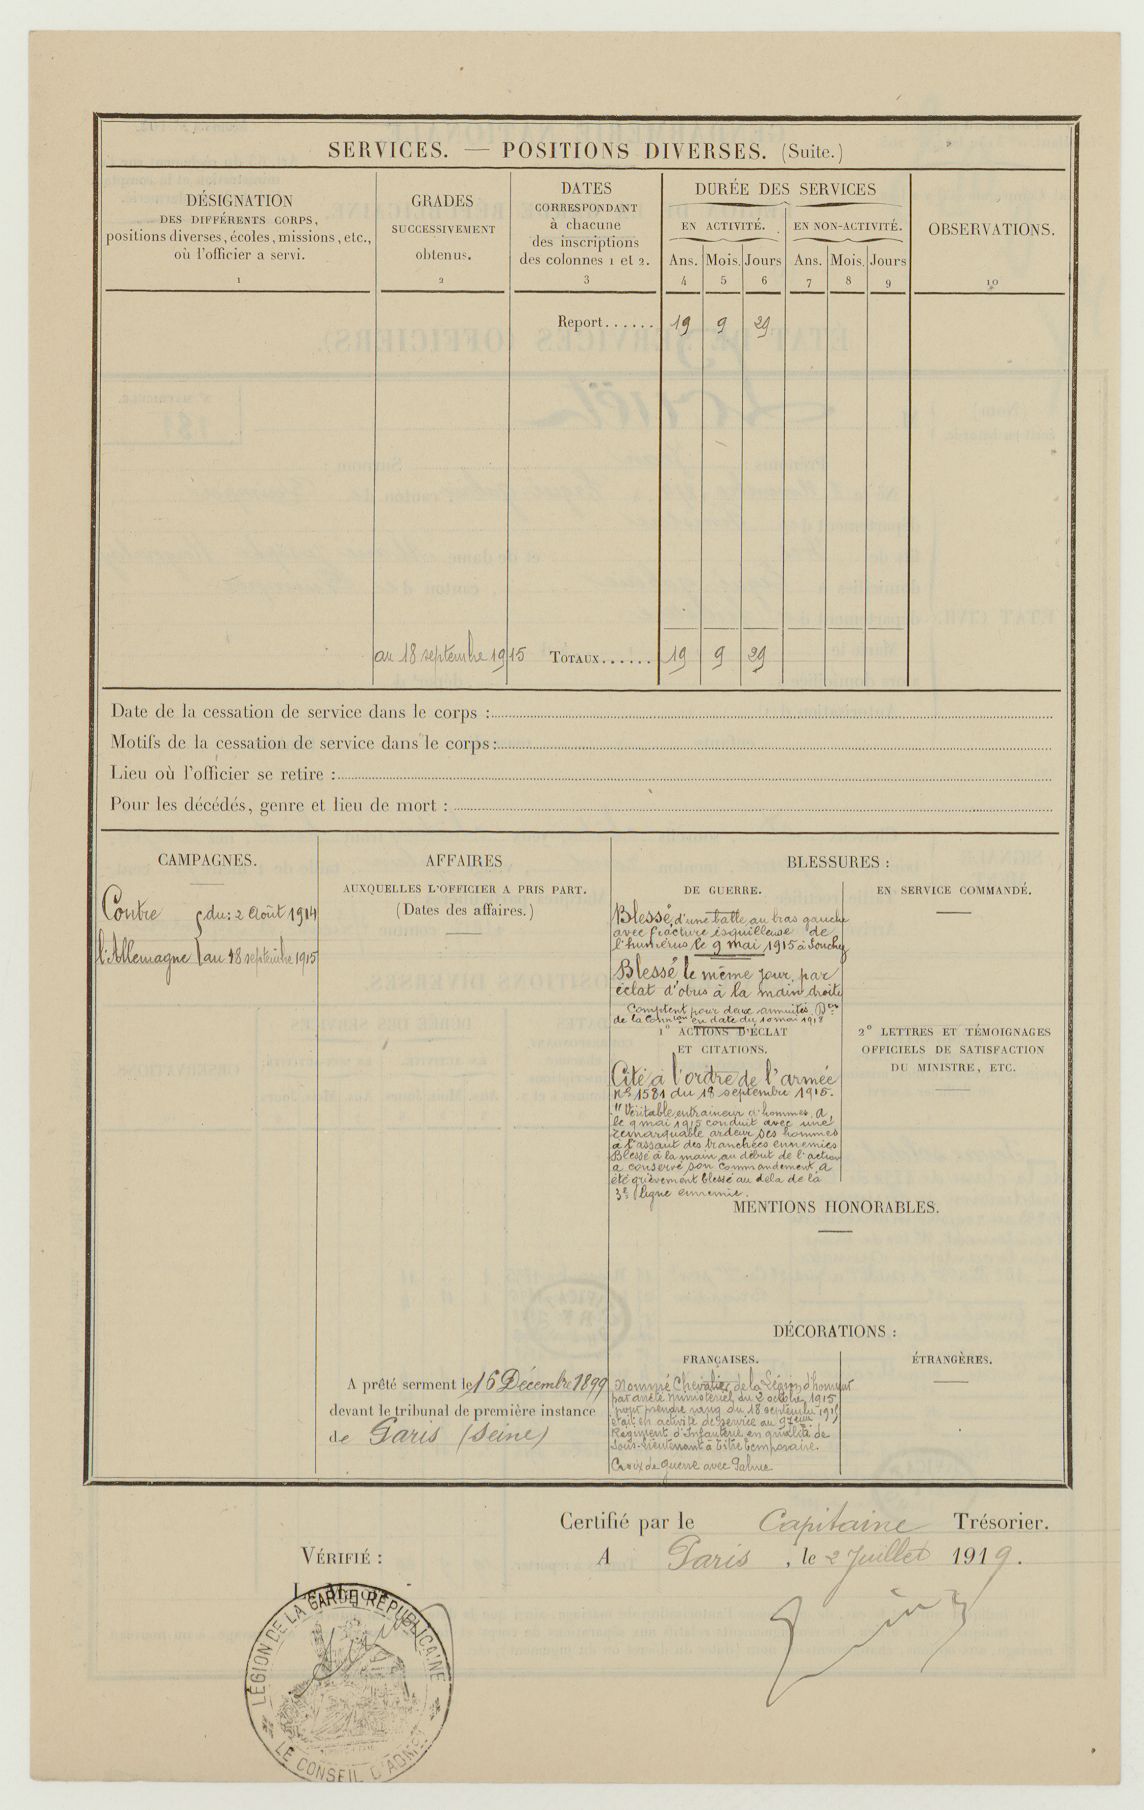 SERVICES. — POSITIONS DIVERSES. (Suite.)
DÉSIGNATION
DES DIFFÉRENTS CORPS,
positions diverses, écoles, missions, etc.,
où l'officier a servi.
1
GRADES
SUCCESSIVEMENT
obtenus.
2
DATES
CORRESPONDANT
à chacune
des inscriptions
des colonnes 1 et 2.
3
DURÉE DES SERVICES
EN ACTIVITÉ.
EN NON-ACTIVITÉ.
Ans. Mois. Jours Ans. Mois. Jours
4 5 6 7 8 9
OBSERVATIONS.
10
Report...... 19 9 29
au 18 septembre 1915 TOTAUX...... 19 9 29
Date de la cessation de service dans le corps :
Motifs de la cessation de service dans le corps :
Lieu où l'officier se retire :
Pour les décédés, genre et lieu de mort :
CAMPAGNES.
Contre { du : 2 Août 1914
l'Allemagne { au 18 septembre 1915
AFFAIRES
AUXQUELLES L'OFFICIER A PRIS PART.
(Dates des affaires.)
A prêté serment le 16 Décembre 1899
devant le tribunal de première instance
de Paris (Seine)
BLESSURES :
DE GUERRE.
Blessé, d'une balle au bras gauche
avec fracture esquilleuse de
l'humérus le 9 mai 1915 à Souchez
Blessé, le même jour, par
éclat d'obus à la main droite
Comptent pour deux annuités. Don
de la Connion en date du 10 mai 1918
EN SERVICE COMMANDÉ.
1° ACTIONS D'ÉCLAT
ET CITATIONS.
Cité à l'ordre de l'armée
n° 1581 du 18 septembre 1915.
"Véritable entraineur d'hommes, a,
le 9 mai 1915 conduit avec une
remarquable ardeur ses hommes
à l'assaut des tranchées ennemies
Blessé à la main au début de l'action
a conservé son commandement. A
été grièvement blessé au dela de la
3e ligne ennemie.
2° LETTRES ET TÉMOIGNAGES
OFFICIELS DE SATISFACTION
DU MINISTRE, ETC.
MENTIONS HONORABLES.
DÉCORATIONS :
FRANÇAISES.
Nommé Chevalier de la Légion d'honneur
par arrêté ministériel du 2 octobre 1915
pour prendre rang du 18 septembre 1915
était en activité de service au 97eme
Régiment d'Infanterie en qualité de
Sous-lieutenant à titre temporaire.
Croix de guerre avec Palme
ÉTRANGÈRES.
Certifié par le Capitaine Trésorier.
A Paris, le 2 Juillet 1919.
VÉRIFIÉ :
LÉGION DE LA GARDE RÉPUBLICAINE
LE CONSEIL D'ADMON